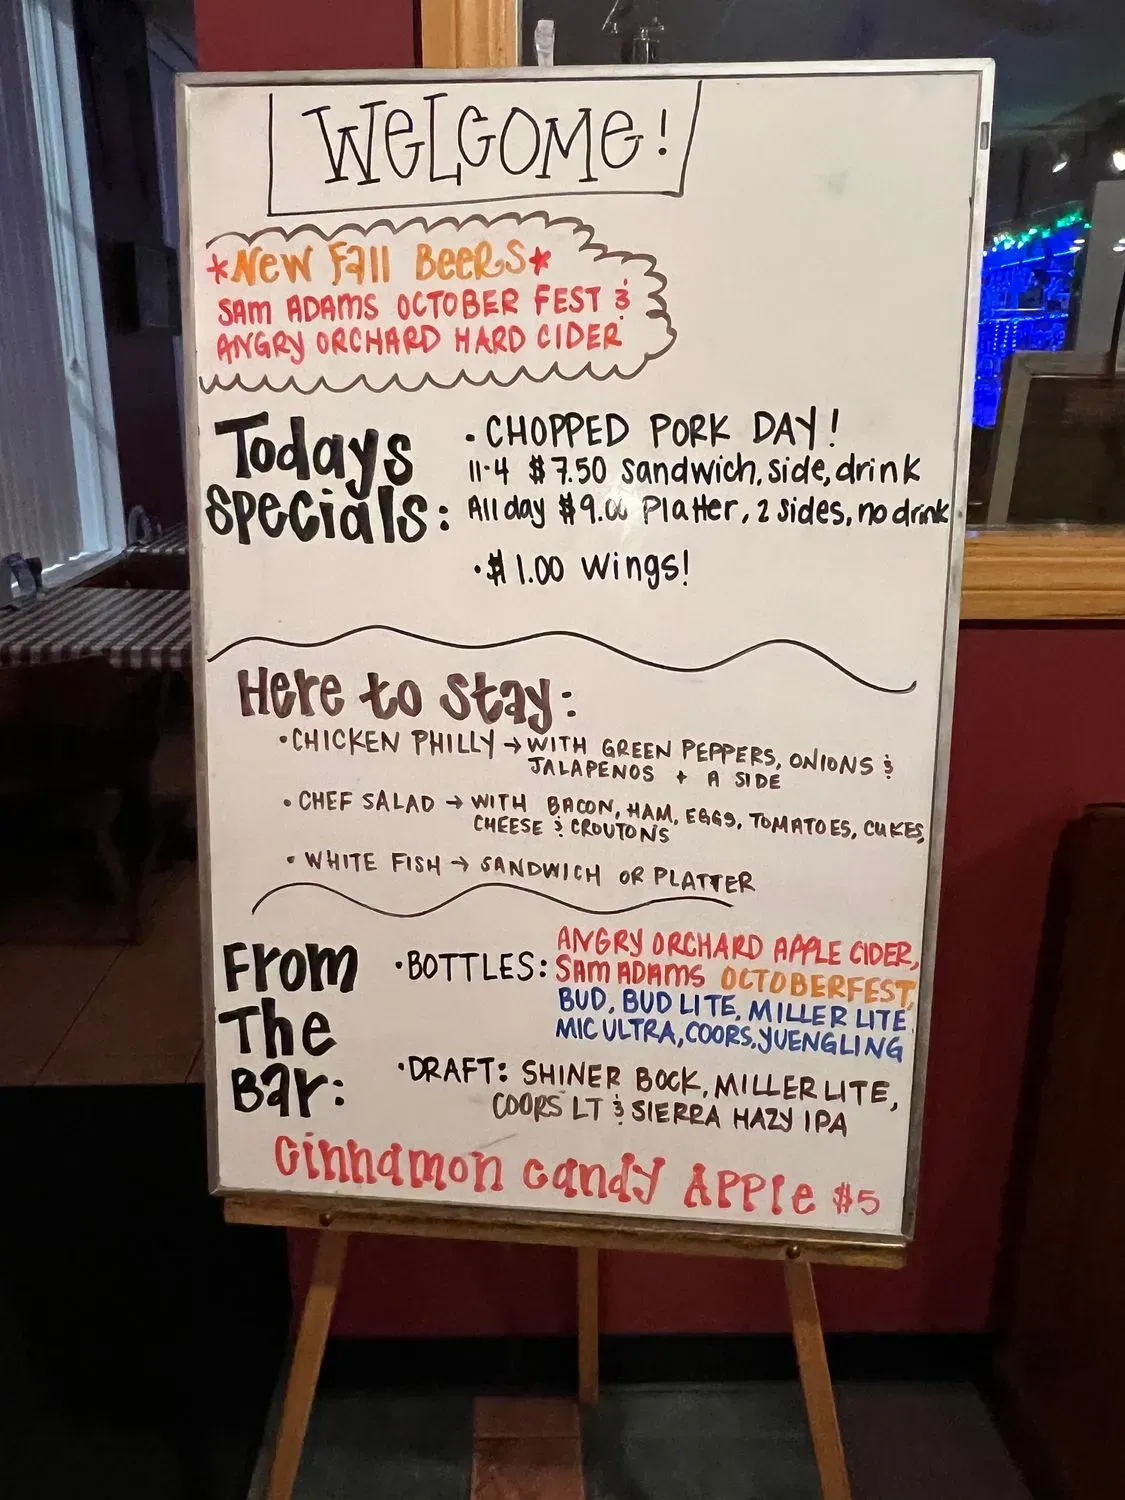 WELCOME!
*New Fall Beers*
SAM ADAMS OCTOBER FEST &
ANGRY ORCHARD HARD CIDER
Todays
Specials:
· CHOPPED PORK DAY!
11-4 $7.50 sandwich, side, drink
All day $9.00 Platter, 2 sides, no drink
· $1.00 Wings!
Here to Stay:
· CHICKEN PHILLY → WITH GREEN PEPPERS, ONIONS &
JALAPENOS + A SIDE
· CHEF SALAD → WITH BACON, HAM, EGGS, TOMATOES, CUKES,
CHEESE & CROUTONS
· WHITE FISH → SANDWICH OR PLATTER
From
The
Bar:
· BOTTLES: ANGRY ORCHARD APPLE CIDER,
SAM ADAMS OCTOBERFEST,
BUD, BUD LITE, MILLER LITE,
MIC ULTRA, COORS, YUENGLING
· DRAFT: SHINER BOCK, MILLER LITE,
COORS LT & SIERRA HAZY IPA
Cinnamon Candy Apple $5